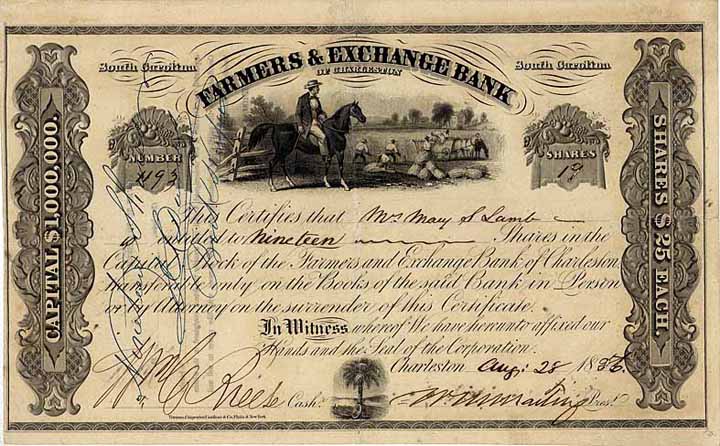 South Carolina
FARMERS & EXCHANGE BANK
OF CHARLESTON
South Carolina
CAPITAL $1,000,000.
SHARES $25 EACH.
NUMBER
SHARES
19
This Certifies that Mrs Mary S Lamb
is entitled to Nineteen Shares in the
Capital Stock of the Farmers and Exchange Bank of Charleston
transferable only on the Books of the said Bank in Person
or by Attorney on the surrender of this Certificate.
In Witness whereof We have hereunto affixed our
Hands and the Seal of the Corporation.
Charleston Aug: 28
Wm C Breese Cash.r
Pres.t